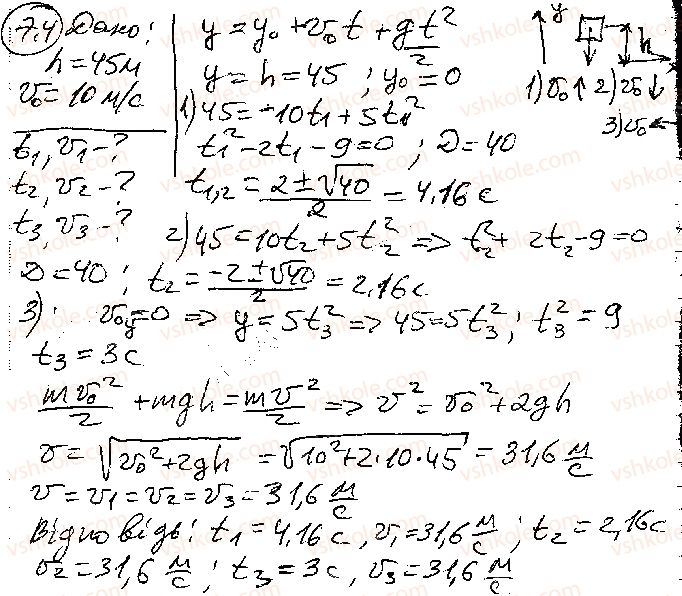 7.4 Дано:
h = 45м
v₀ = 10 м/с
t₁, v₁ - ?
t₂, v₂ - ?
t₃, v₃ - ?
y = y₀ + v₀t + gt²/2
y = h = 45 ; y₀ = 0
1) 45 = -10t₁ + 5t₁²
t₁² - 2t₁ - 9 = 0 ; D = 40
t₁,₂ = (2 ± √40)/2 = 4,16 с
y h
1) v₀ ↑ 2) v₀ ↓
3) v₀ ←
2) 45 = 10t₂ + 5t₂² => t₂² + 2t₂ - 9 = 0
D = 40 ; t₂ = (-2 ± √40)/2 = 2,16 с
3) v₀y = 0 => y = 5t₃² => 45 = 5t₃² ; t₃² = 9
t₃ = 3 с
mv₀²/2 + mgh = mv²/2 => v² = v₀² + 2gh
v = √(v₀² + 2gh) = √(10² + 2·10·45) = 31,6 м/с
v = v₁ = v₂ = v₃ = 31,6 м/с
Відповідь: t₁ = 4,16 с, v₁ = 31,6 м/с ; t₂ = 2,16 с
v₂ = 31,6 м/с ; t₃ = 3 с, v₃ = 31,6 м/с